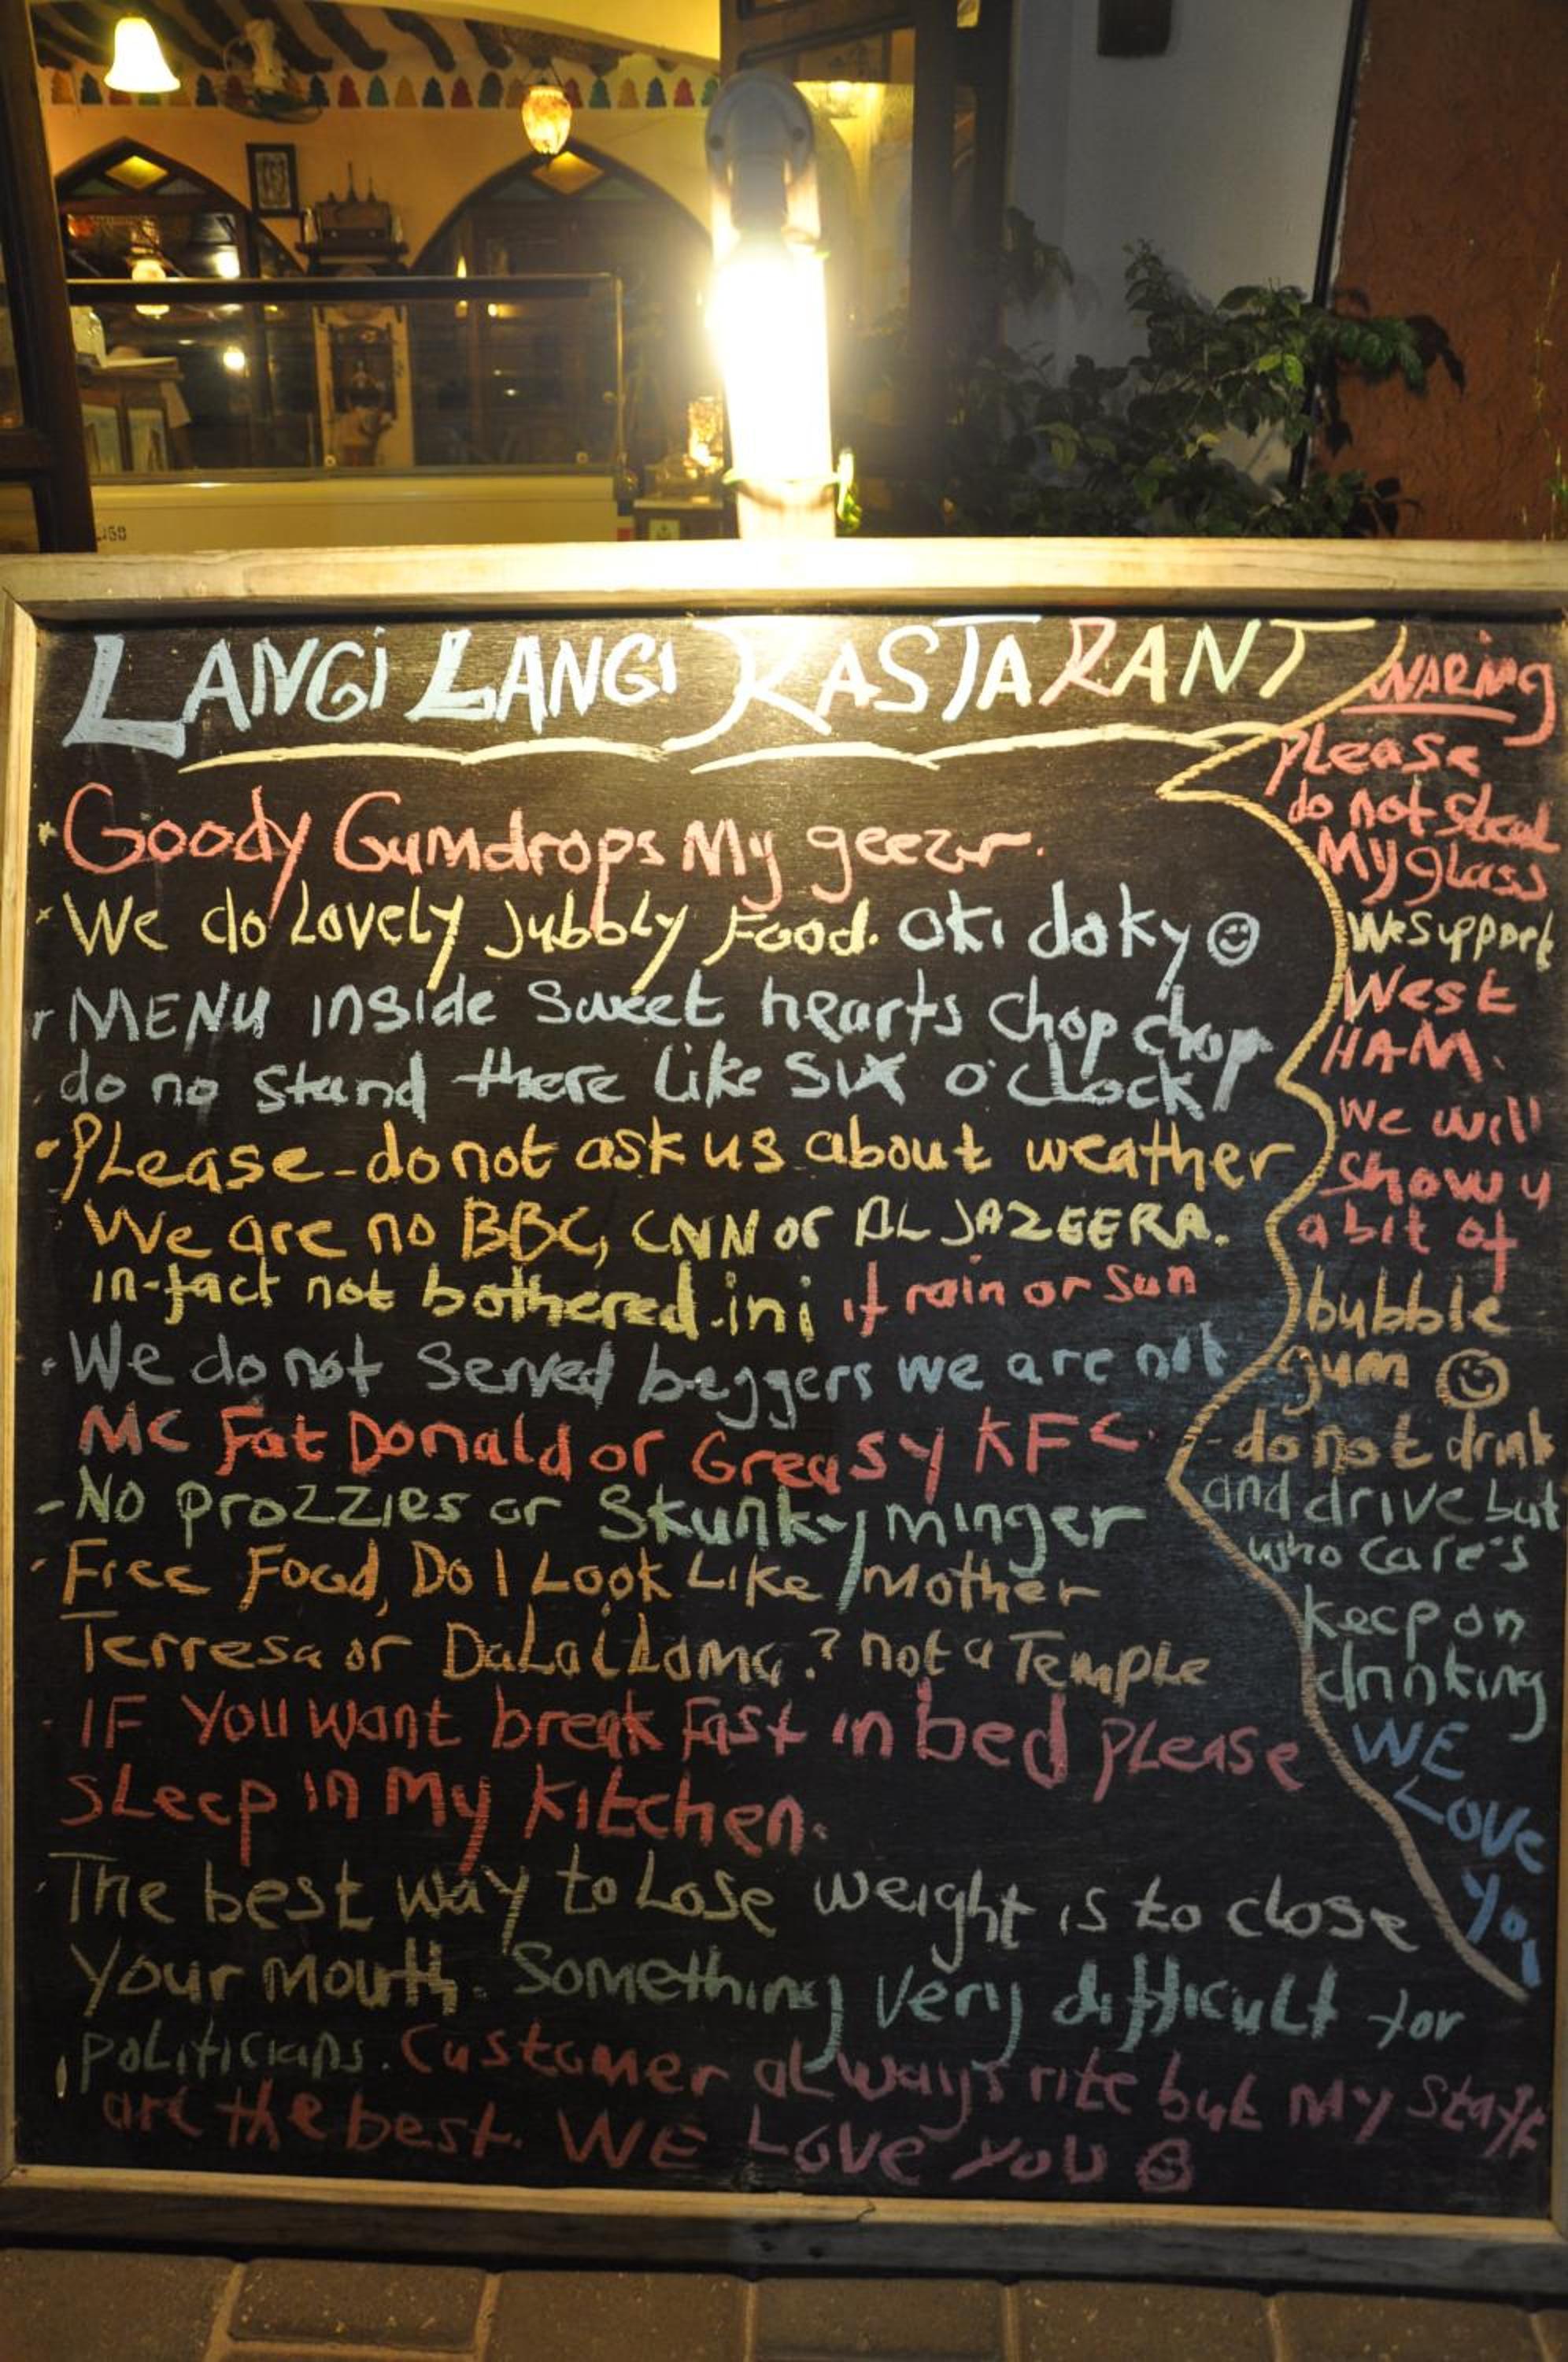 LANGI LANGI RASTARANT
Goody Gumdrops My geezer.
We do Lovely Jubbly Food. Oki doky
MENU inside Sweet hearts chop chop
do no stand there Like Six o'clock
Please-do not ask us about weather
We are no BBC, CNN or AL JAZEERA.
in-fact not bothered.ini if rain or Sun
We do not Served beggers we are not
MC Fat Donald or Greasy KFC.
-No prozzies or Skunky minger
Free Food, Do I Look Like Mother
Terresa or DaLai Lama.? not a Temple
IF You want break Fast in bed PLease
SLeep in My Kitchen.
The best way to Lose weight is to close
Your Mouth. Something very difficult for
PoLiticians. Customer aLways rite but My Staff
are the best. WE Love YOU
WARNING
PLease
do not Steal
My glass
We support
West
HAM.
We will
Show u
a bit of
bubble
gum
-do not drink
and drive but
who care's
keep on
drinking
WE
Love
You